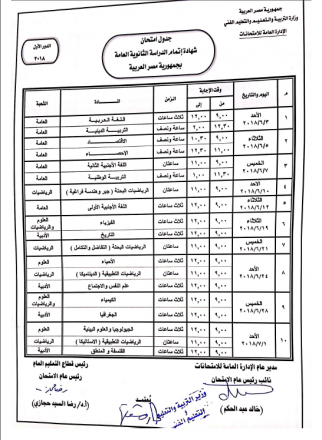 جمهورية مصر العربية
وزارة التربية والتعليم والتعليم الفنى
الإدارة العامة للامتحانات
جدول امتحان
شهادة إتمام الدراسة الثانوية العامة
بجمهورية مصر العربية
الدور الأول
٢٠١٨
م اليوم والتاريخ وقت الإجابة من إلى الزمن المــــادة الشعبة
١ الأحد ٢٠١٨/٦/٣ ٩,٠٠ ١٢,٠٠ ثلاث ساعات اللغة العربية العامة
١٢,٣٠ ٢,٠٠ ساعة ونصف التربية الدينية العامة
٢ الثلاثاء ٢٠١٨/٦/٥ ٩,٠٠ ساعة ونصف الاقتصاد العامة
١١,٠٠ ١٢,٣٠ ساعة ونصف الإحصاء العامة
٣ الخميس ٢٠١٨/٦/٧ ٩,٠٠ ١١,٠٠ ساعتان اللغة الأجنبية الثانية العامة
١١,٣٠ ١,٠٠ ساعة ونصف التربية الوطنية العامة
٤ الأحد ٢٠١٨/٦/١٠ ٩,٠٠ ١١,٠٠ ساعتان الرياضيات البحتة ( جبر وهندسة فراغية ) الرياضيات
٥ الثلاثاء ٢٠١٨/٦/١٢ ٩,٠٠ ١٢,٠٠ ثلاث ساعات اللغة الأجنبية الأولى العامة
٦ الثلاثاء ٢٠١٨/٦/١٩ ٩,٠٠ ١٢,٠٠ ثلاث ساعات الفيزياء العلوم والرياضيات
٩,٠٠ ١٢,٠٠ ثلاث ساعات التاريخ الأدبية
٧ الخميس ٢٠١٨/٦/٢١ ٩,٠٠ ١١,٠٠ ساعتان الرياضيات البحتة ( التفاضل والتكامل ) الرياضيات
٨ الأحد ٢٠١٨/٦/٢٤ ٩,٠٠ ١٢,٠٠ ثلاث ساعات الأحياء العلوم
٩,٠٠ ١١,٠٠ ساعتان الرياضيات التطبيقية ( الديناميكا ) الرياضيات
٩,٠٠ ١٢,٠٠ ثلاث ساعات علم النفس والاجتماع الأدبية
٩ الخميس ٢٠١٨/٦/٢٨ ٩,٠٠ ١٢,٠٠ ثلاث ساعات الكيمياء العلوم والرياضيات
٩,٠٠ ١٢,٠٠ ثلاث ساعات الجغرافيا الأدبية
١٠ الأحد ٢٠١٨/٧/١ ٩,٠٠ ١٢,٠٠ ثلاث ساعات الجيولوجيا والعلوم البيئية العلوم
٩,٠٠ ١١,٠٠ ساعتان الرياضيات التطبيقية ( الاستاتيكا ) الرياضيات
٩,٠٠ ١٢,٠٠ ثلاث ساعات الفلسفة و المنطق الأدبية
مدير عام الإدارة العامة للامتحانات
نائب رئيس عام الامتحان
(خالد عبد الحكم)
رئيس قطاع التعليم العام
رئيس عام الامتحان
(أ.د/ رضا السيد حجازى)
يُعتمد
وزير التربية والتعليم
والتعليم الفنى